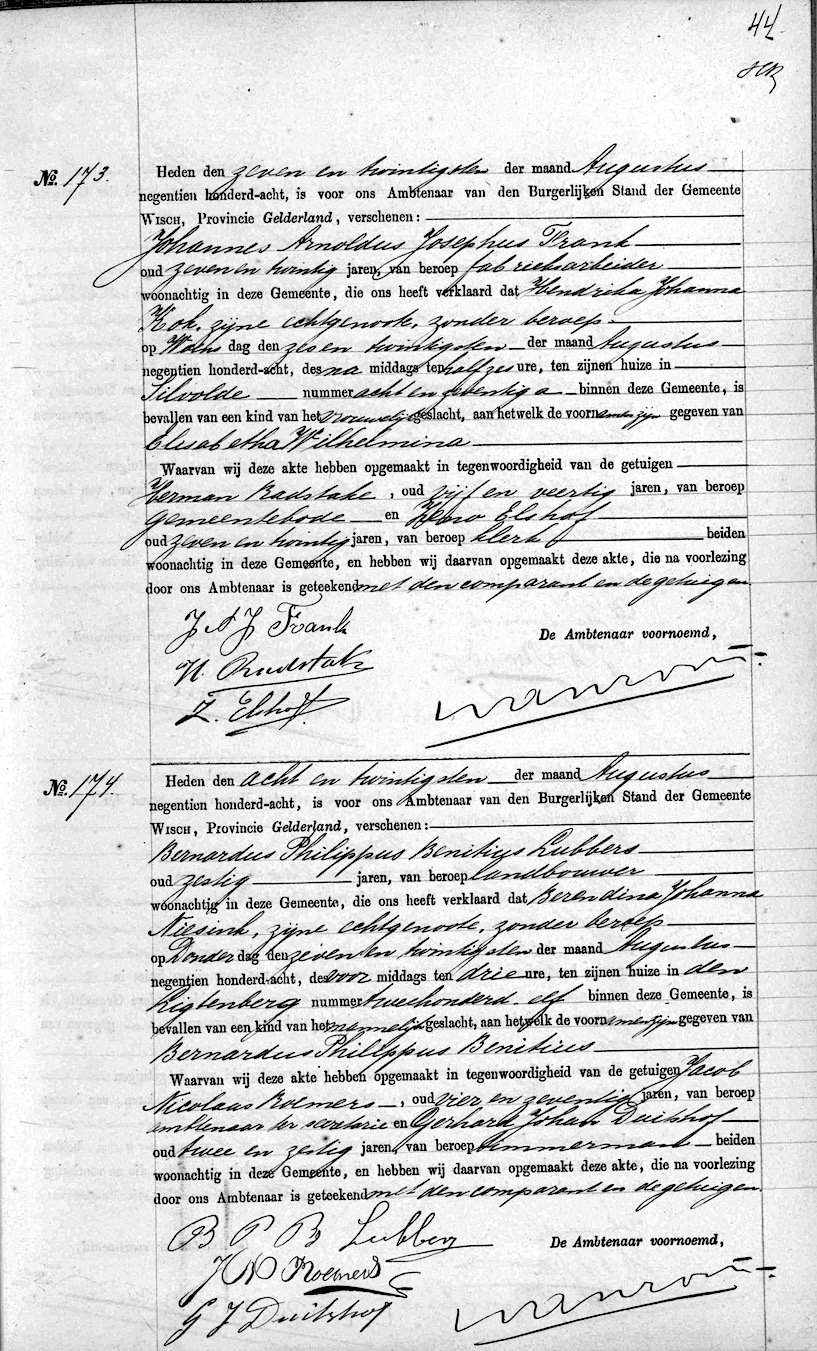 44
No. 173.
Heden den zeven en twintigsten der maand Augustus
negentien honderd-acht, is voor ons Ambtenaar van den Burgerlijken Stand der Gemeente
WISCH, Provincie Gelderland, verschenen:
Johannes Arnoldus Josephus Frank
oud zeven en twintig jaren, van beroep fabrieksarbeider
woonachtig in deze Gemeente, die ons heeft verklaard dat Hendrika Johanna
Kok, zijne echtgenoote, zonder beroep
op Woens dag den zes en twintigsten der maand Augustus
negentien honderd-acht, des na middags ten half zes ure, ten zijnen huize in
Silvolde nummer acht en zeventig a binnen deze Gemeente, is
bevallen van een kind van het vrouwelijk geslacht, aan hetwelk de voornamen zijn gegeven van
Elisabetha Wilhelmina
Waarvan wij deze akte hebben opgemaakt in tegenwoordigheid van de getuigen
Herman Radstake, oud vijf en veertig jaren, van beroep
gemeentebode en Zeno Elshof
oud zeven en twintig jaren, van beroep klerk beiden
woonachtig in deze Gemeente, en hebben wij daarvan opgemaakt deze akte, die na voorlezing
door ons Ambtenaar is geteekend met den comparant en de getuigen
J A J Frank
De Ambtenaar voornoemd,
H. Radstake
Z. Elshof.
No. 174.
Heden den acht en twintigsten der maand Augustus
negentien honderd-acht, is voor ons Ambtenaar van den Burgerlijken Stand der Gemeente
WISCH, Provincie Gelderland, verschenen:
Bernardus Philippus Benitius Lubbers
oud zestig jaren, van beroep landbouwer
woonachtig in deze Gemeente, die ons heeft verklaard dat Berendina Johanna
Niesink, zijne echtgenoote, zonder beroep
op Donder dag den zeven en twintigsten der maand Augustus
negentien honderd-acht, des voor middags ten drie ure, ten zijnen huize in den
Ligtenberg nummer tweehonderd elf binnen deze Gemeente, is
bevallen van een kind van het mannelijk geslacht, aan hetwelk de voornamen zijn gegeven van
Bernardus Philippus Benitius
Waarvan wij deze akte hebben opgemaakt in tegenwoordigheid van de getuigen Jacob
Nicolaas Roemers, oud vier en zeventig jaren, van beroep
ambtenaar ter secretarie en Gerhard Johan Duitshof
oud twee en zestig jaren, van beroep timmerman beiden
woonachtig in deze Gemeente, en hebben wij daarvan opgemaakt deze akte, die na voorlezing
door ons Ambtenaar is geteekend met den comparant en de getuigen.
B P B Lubbers
De Ambtenaar voornoemd,
J N Roemers
G J Duitshof